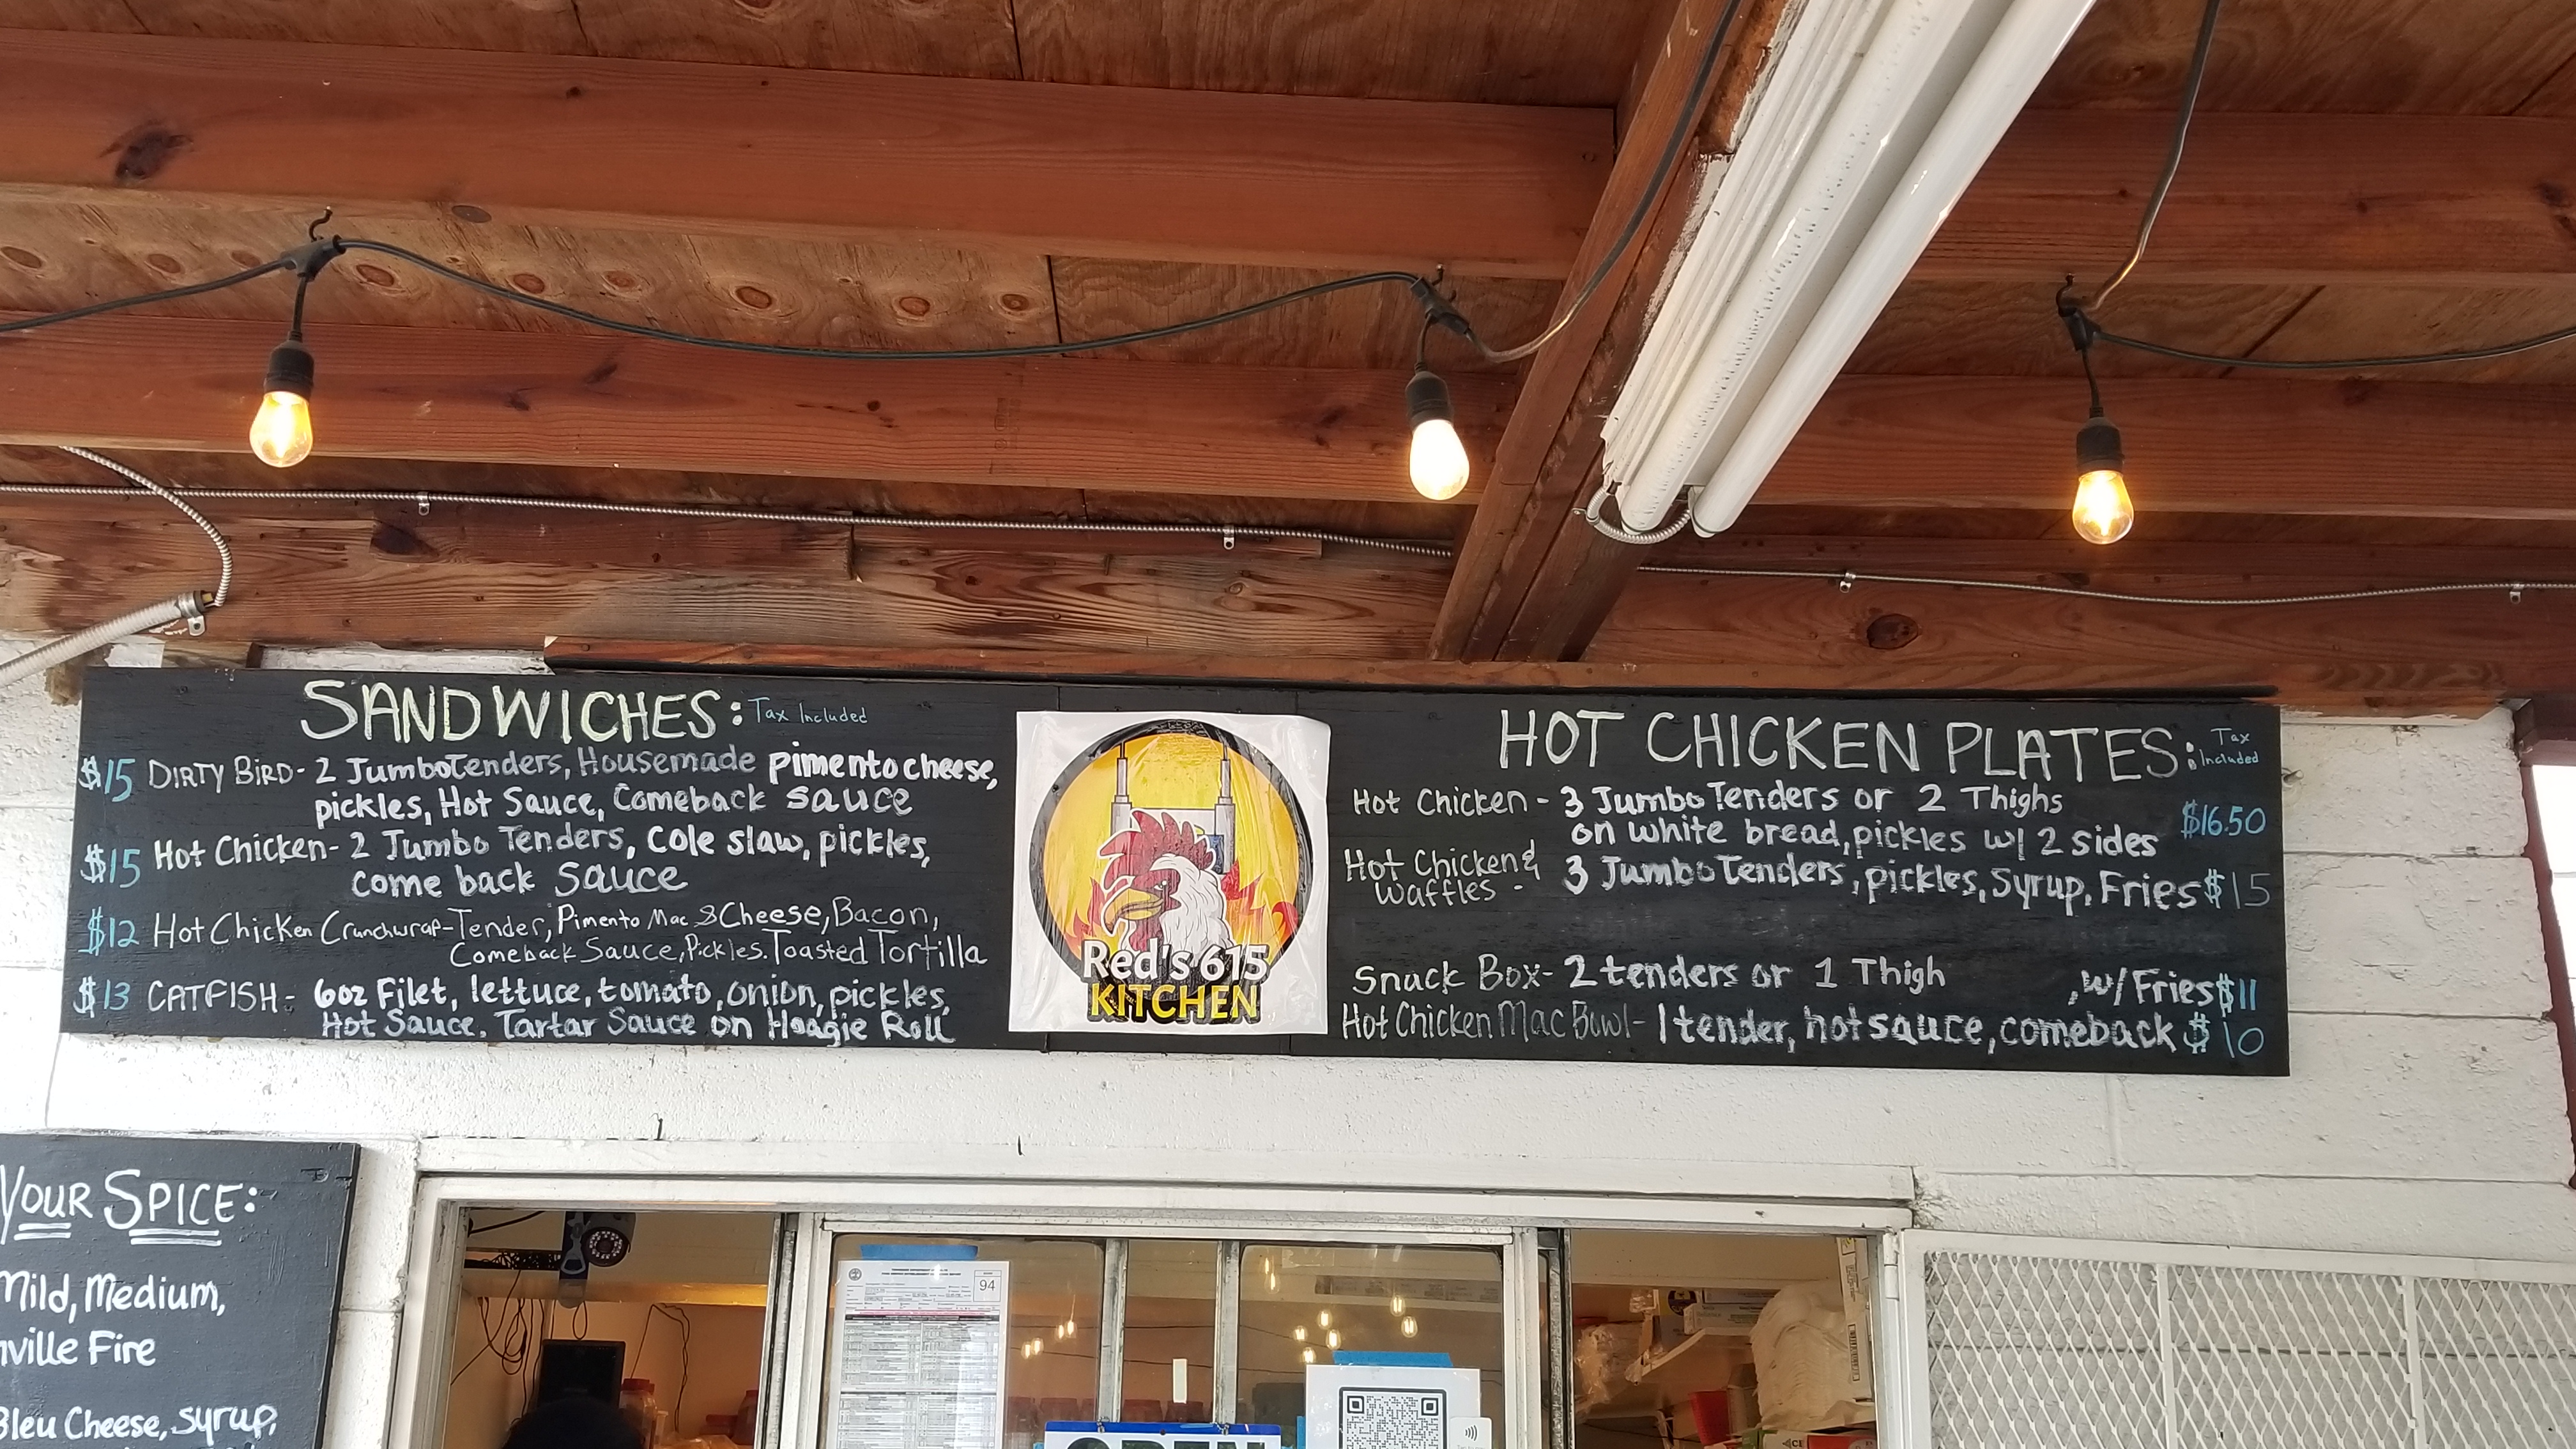 SANDWICHES: Tax Included
$15 DIRTY BIRD- 2 Jumbo Tenders, Housemade pimento cheese,
pickles, Hot Sauce, Comeback sauce
$15 Hot Chicken- 2 Jumbo Tenders, Cole slaw, pickles,
come back Sauce
$12 Hot Chicken Crunchwrap-Tender, Pimento Mac & Cheese, Bacon,
Comeback Sauce, Pickles. Toasted Tortilla
$13 CATFISH- 6oz Filet, lettuce, tomato, onion, pickles,
Hot Sauce, Tartar Sauce on Hoagie Roll
Red's 615
KITCHEN
HOT CHICKEN PLATES: Tax
Included
Hot Chicken - 3 Jumbo Tenders or 2 Thighs
on white bread, pickles w/ 2 sides $16.50
Hot Chicken &
Waffles - 3 Jumbo Tenders, pickles, Syrup, Fries $15
Snack Box- 2 tenders or 1 Thigh , w/ Fries $11
Hot Chicken Mac Bowl- 1 tender, hot sauce, comeback $10
YOUR SPICE:
Mild, Medium,
ville Fire
Bleu Cheese, syrup,
94
OPEN